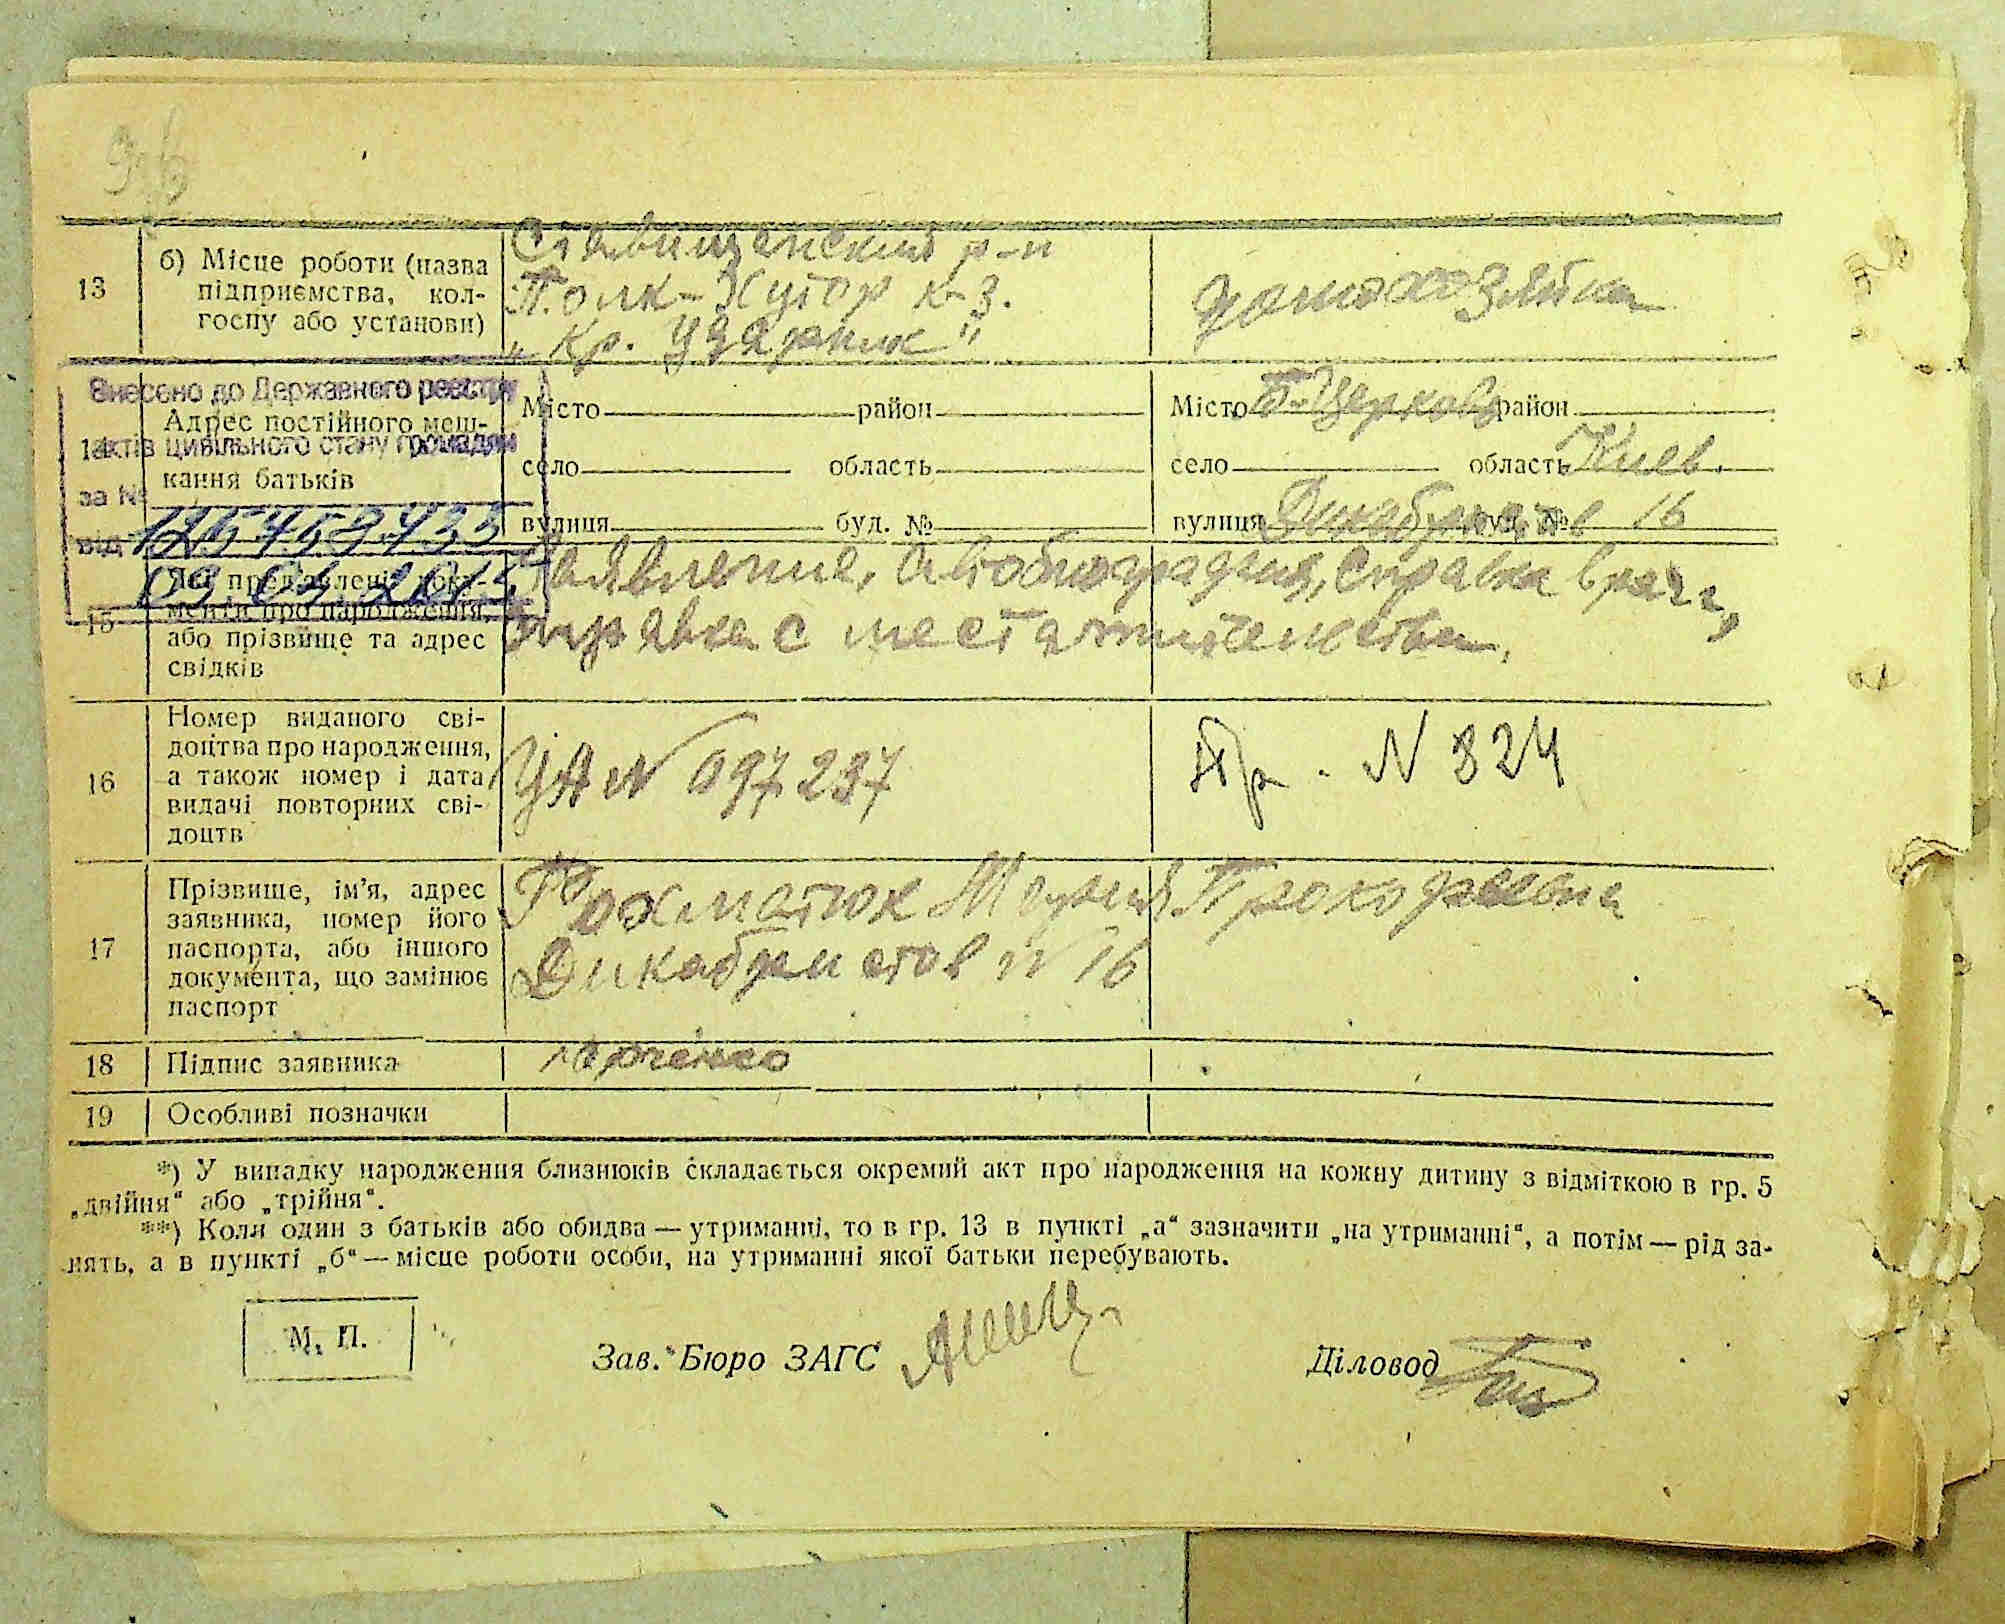 13
б) Місце роботи (назва
підприємства, кол-
госпу або установи)
Ставищенский р-н
Полк-Хутор к-з.
„Кр. Ударник"
домохозяйка
Внесено до Державного реєстру
актів цивільного стану громадян
за №
125459433
від
Адрес постійного меш-
кання батьків
Місто район
село область
вулиця буд. №
Місто Б-Церковь район
село область Киев.
вулиця Дикабристов буд. № 16
15
Які пред'явлені доку-
менти про народження,
або прізвище та адрес
свідків
Заявление, автобиография, справка врача,
справка с места жительства.
16
Номер виданого сві-
доцтва про народження,
а також номер і дата
видачі повторних сві-
доцтв
УА № 097237
Пр. N 324
17
Прізвище, ім'я, адрес
заявника, номер його
паспорта, або іншого
документа, що замінює
паспорт
Рохматюк Мария Прокофьевна
Дикабристов № 16
18
Підпис заявника
19
Особливі позначки
*) У випадку народження близнюків складається окремий акт про народження на кожну дитину з відміткою в гр. 5
„двійня" або „трійня".
**) Коли один з батьків або обидва — утриманці, то в гр. 13 в пункті „а" зазначити „на утриманні", а потім — рід за-
нять, а в пункті „б" — місце роботи особи, на утриманні якої батьки перебувають.
М. П.
Зав. Бюро ЗАГС
Діловод